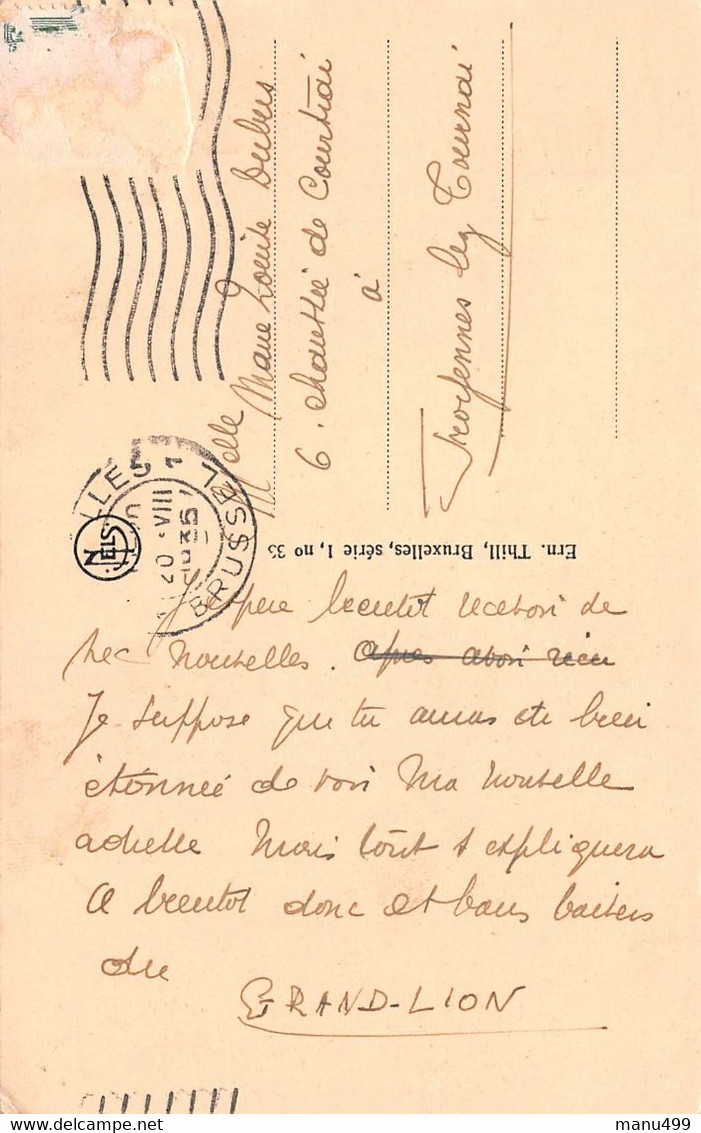 Melle Marie Louise Dubus
6. chaussée de Courtrai
à
Froyennes lez Tournai
Ern. Thill, Bruxelles, série 1, no 33
NELS
BRUSSEL 1
20 VIII
1935
J'espère bientot recevoir de
tes nouvelles. Apres avoir recu
Je suppose que tu auras ete bien
étonnée de voir ma nouvelle
adresse Mais tout s expliquera
A bientot donc et bons baisers
du
GRAND-LION
manu499